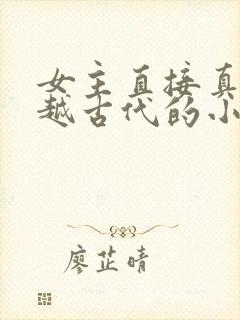 女主直接真
越古代的小
廖芷晴